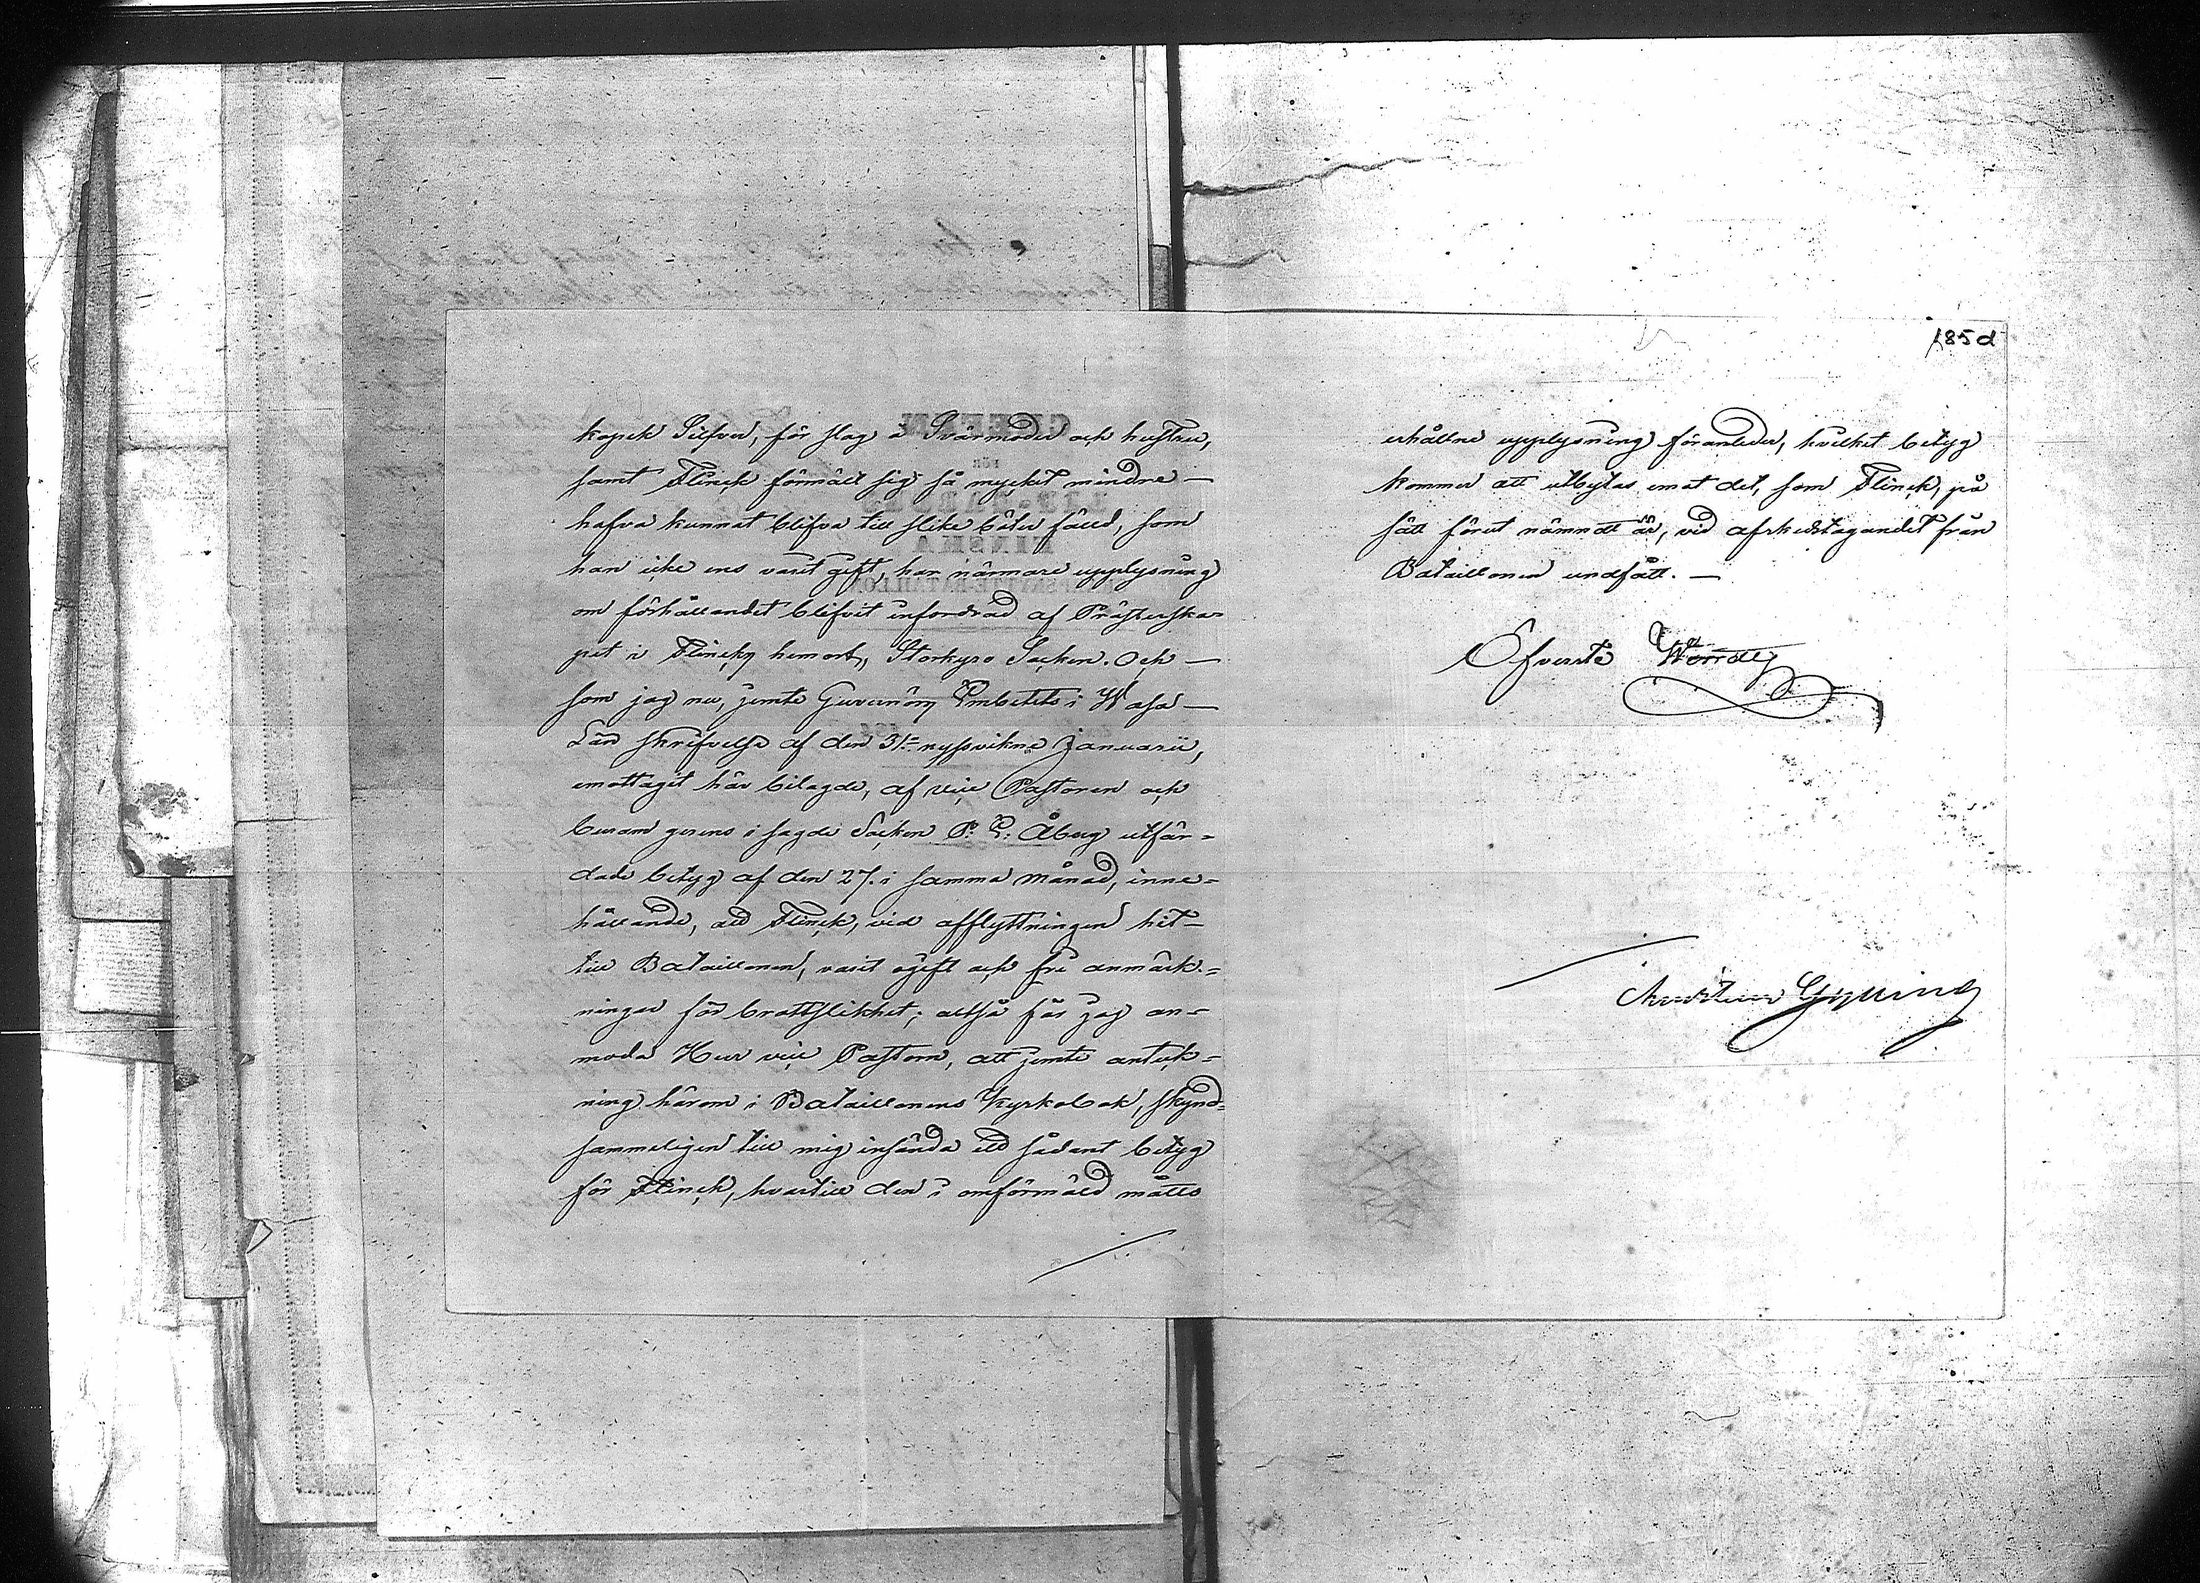 185d
kopek Silfver, för slag å Svärmoder och hustru,
samt Flinck förmält sig så mycket mindre —
hafva kunnat blifva till slike böter fälld, som
han icke ens varit gift, har närmare upplysning
om förhållandet blifvit infordrad af Prästerska-
pet i Flincks hemort, Storkyro Socken. Och —
som jag nu, jemte Guvernörs Embetets i Wasa —
Län skrifvelse af den 31ste nyssvikne Januarii,
emottagit här bilagde, af vice Pastoren och
i sagde Socken P. E. Åberg utfär=
dade betyg af den 27. i samma månad, inne=
hållande, att Flinck, vid afflyttningen hit—
till Bataillonen, varit ogift och fri anmärk=
ningar för brottslikhet; altså får jag an=
moda Herr vice Pastorn, att jemte anteck=
ning härom i Bataillonens kyrkobok, skynd=
sammeligen till mig insända ett sådant betyg
för Flinck, hvartill den i omförmäld måtto
erhållne upplysning föranleder, hvilket betyg
kommer att utbytas emot det, som Flinck, på
sätt förut nämndt är, vid afskedstagandet från
Bataillonen undfått. —
Öfverste